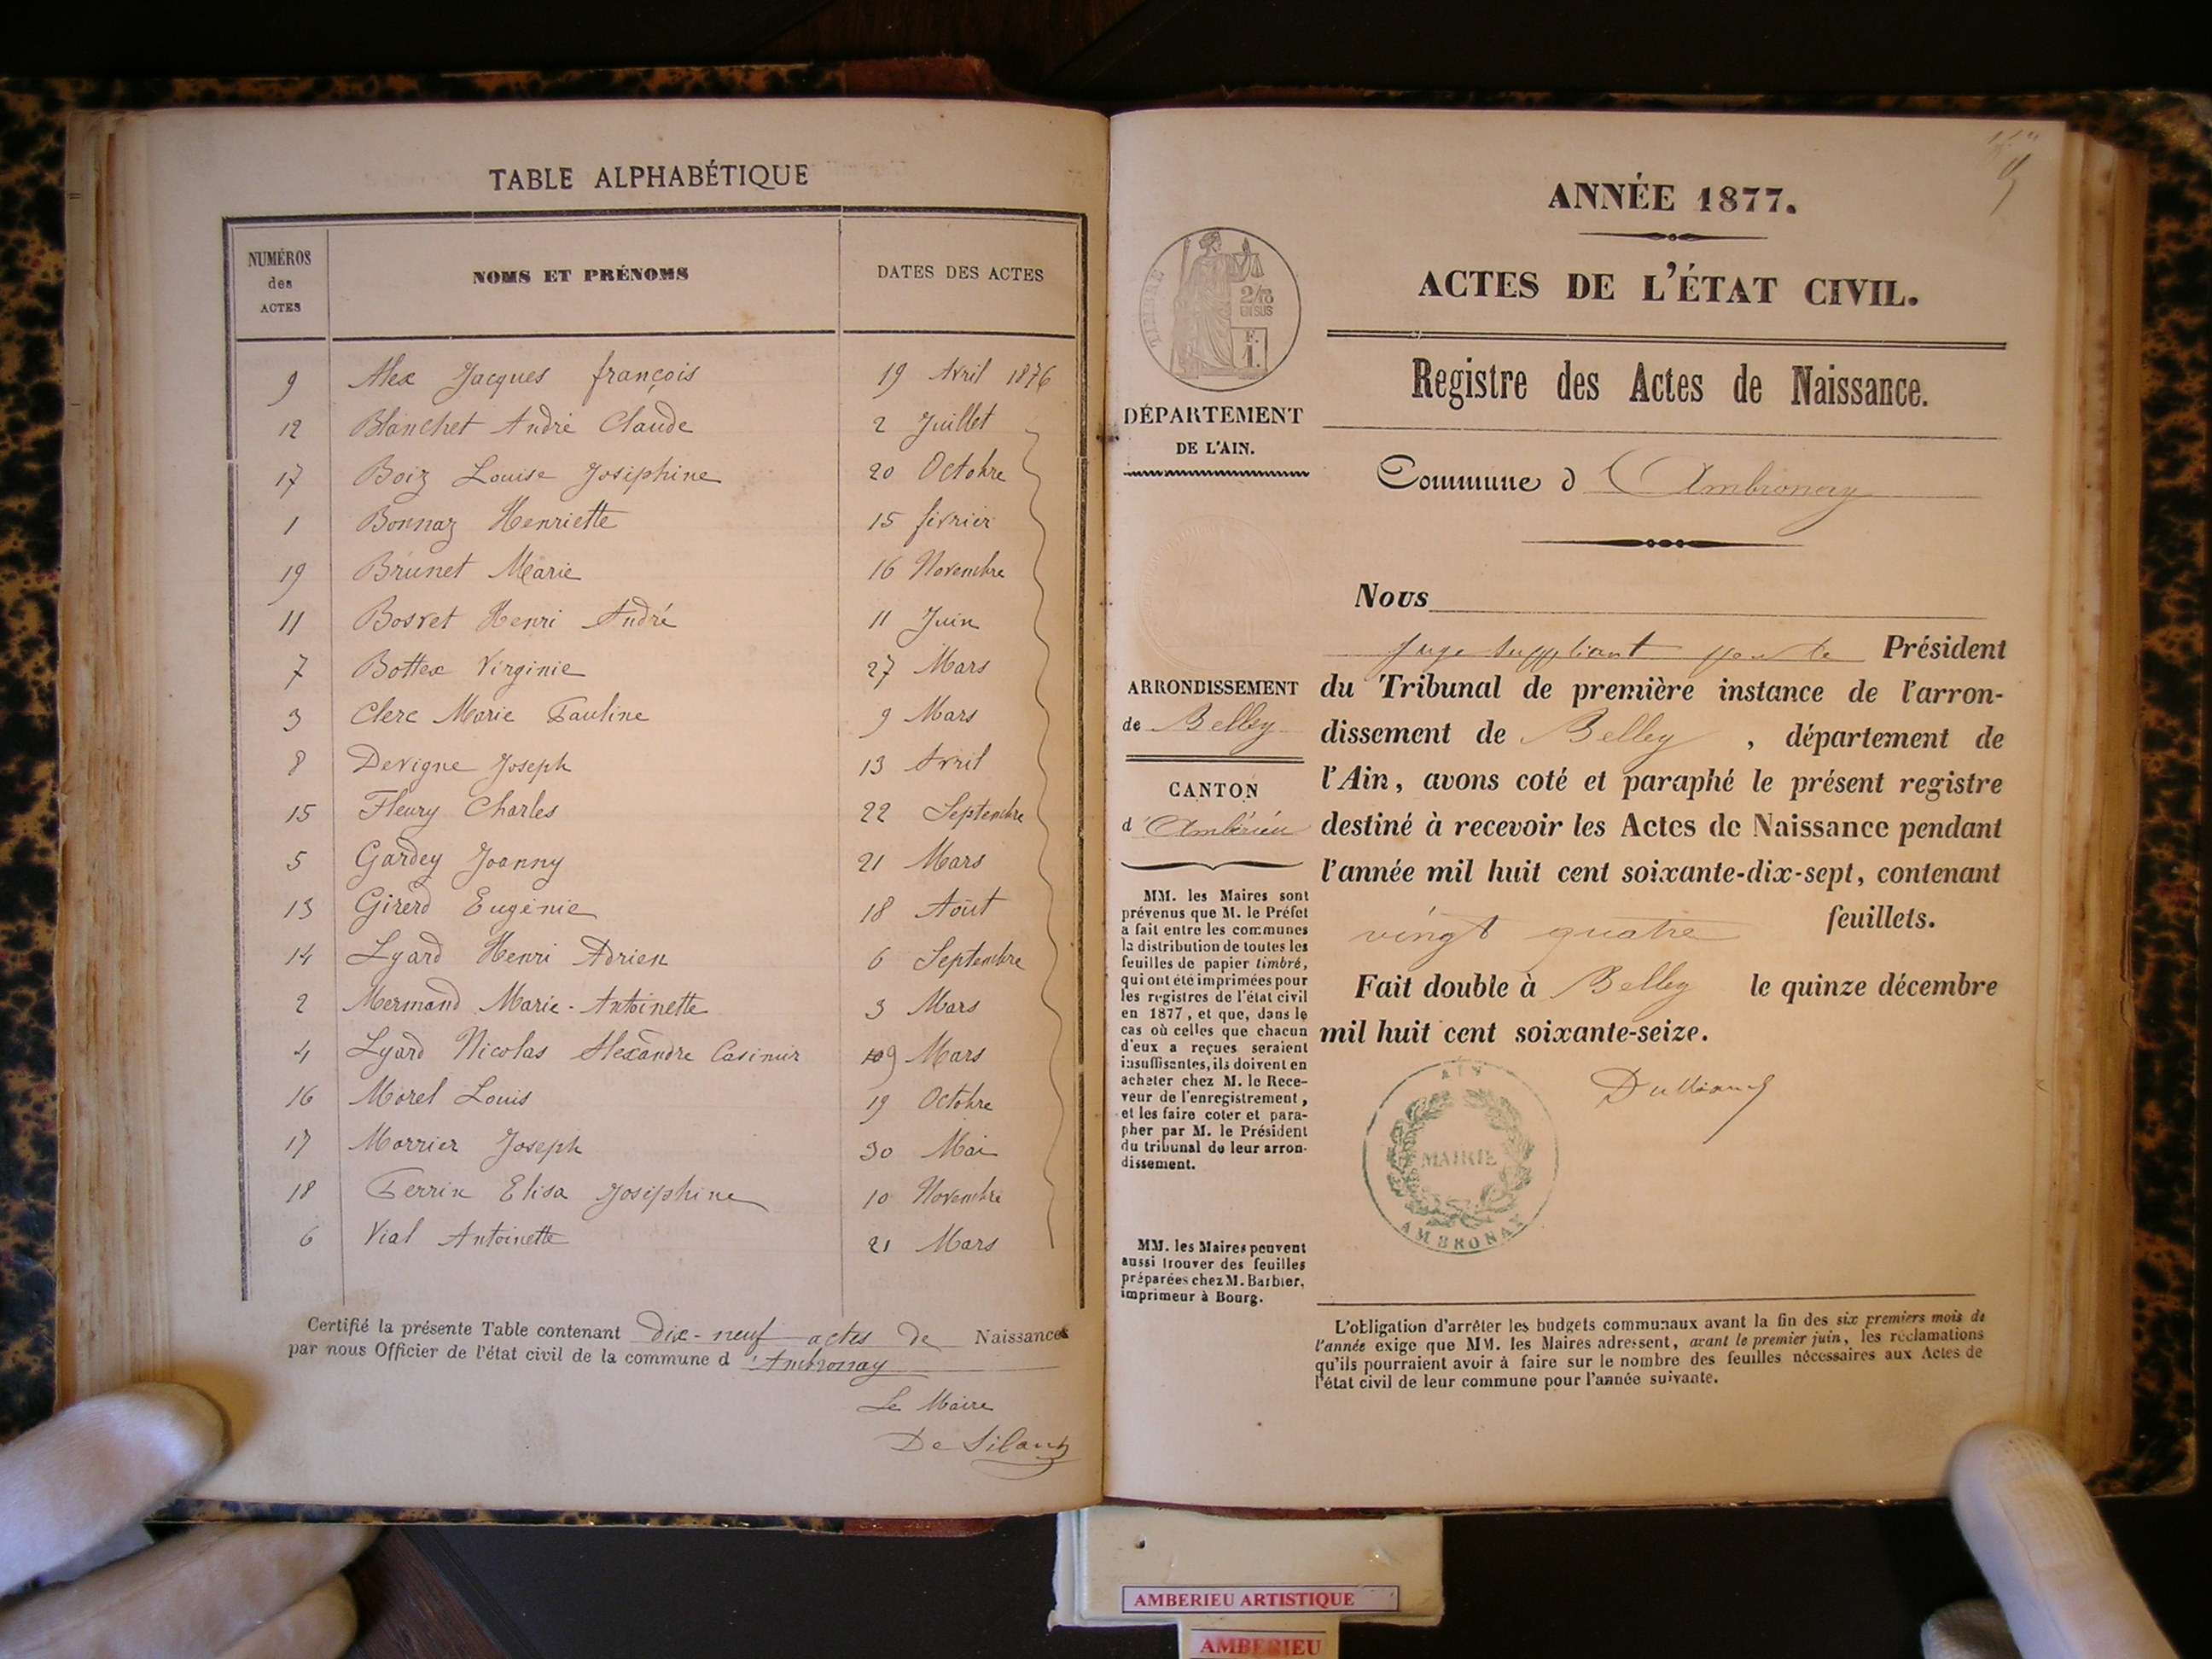 TABLE ALPHABÉTIQUE
NUMÉROS des ACTES
NOMS ET PRÉNOMS
DATES DES ACTES
9 Alex Jacques françois 19 Avril 1876
12 Blanchet André Claude 2 Juillet
17 Boiz Louise Joséphine 20 Octobre
1 Bonnaz Henriette 15 février
19 Brunet Marie 16 Novembre
11 Bosvet Henri André 11 Juin
7 Bottex Virginie 27 Mars
3 Clerc Marie Pauline 9 Mars
8 Devigne Joseph 13 Avril
15 Fleury Charles 22 Septembre
5 Gardey Joanny 21 Mars
13 Girerd Eugénie 18 Août
14 Lyard Henri Adrien 6 Septembre
2 Mermand Marie-Antoinette 3 Mars
4 Lyard Nicolas Alexandre Casimir 9 Mars
16 Morel Louis 19 Octobre
17 Morrier Joseph 30 Mai
18 Perrin Elisa Joséphine 10 Novembre
6 Vial Antoinette 21 Mars
Certifié la présente Table contenant dix-neuf actes de Naissances
par nous Officier de l'état civil de la commune d'Ambronay
Le Maire
De Silans
ANNÉE 1877.
ACTES DE L'ÉTAT CIVIL.
TIMBRE
2/10
EN SUS
F.
1.
Registre des Actes de Naissance.
DÉPARTEMENT
DE L'AIN.
Commune d Ambronay
Nous
Juge suppléant pour le Président
ARRONDISSEMENT
de Belley
du Tribunal de première instance de l'arron-
dissement de Belley, département de
l'Ain, avons coté et paraphé le présent registre
destiné à recevoir les Actes de Naissance pendant
l'année mil huit cent soixante-dix-sept, contenant
vingt quatre feuillets.
Fait double à Belley le quinze décembre
mil huit cent soixante-seize.
CANTON
d'Ambérieu
MM. les Maires sont
prévenus que M. le Préfet
a fait entre les communes
la distribution de toutes les
feuilles de papier timbré,
qui ont été imprimées pour
les registres de l'état civil
en 1877, et que, dans le
cas où celles que chacun
d'eux a reçues seraient
insuffisantes, ils doivent en
acheter chez M. le Rece-
veur de l'enregistrement,
et les faire coter et para-
pher par M. le Président
du tribunal de leur arron-
dissement.
AIN
MAIRIE
AMBRONAY
MM. les Maires peuvent
aussi trouver des feuilles
préparées chez M. Barbier,
imprimeur à Bourg.
L'obligation d'arrêter les budgets communaux avant la fin des six premiers mois de
l'année exige que MM. les Maires adressent, avant le premier juin, les réclamations
qu'ils pourraient avoir à faire sur le nombre des feuilles nécessaires aux Actes de
l'état civil de leur commune pour l'année suivante.
AMBERIEU ARTISTIQUE
AMBERIEU